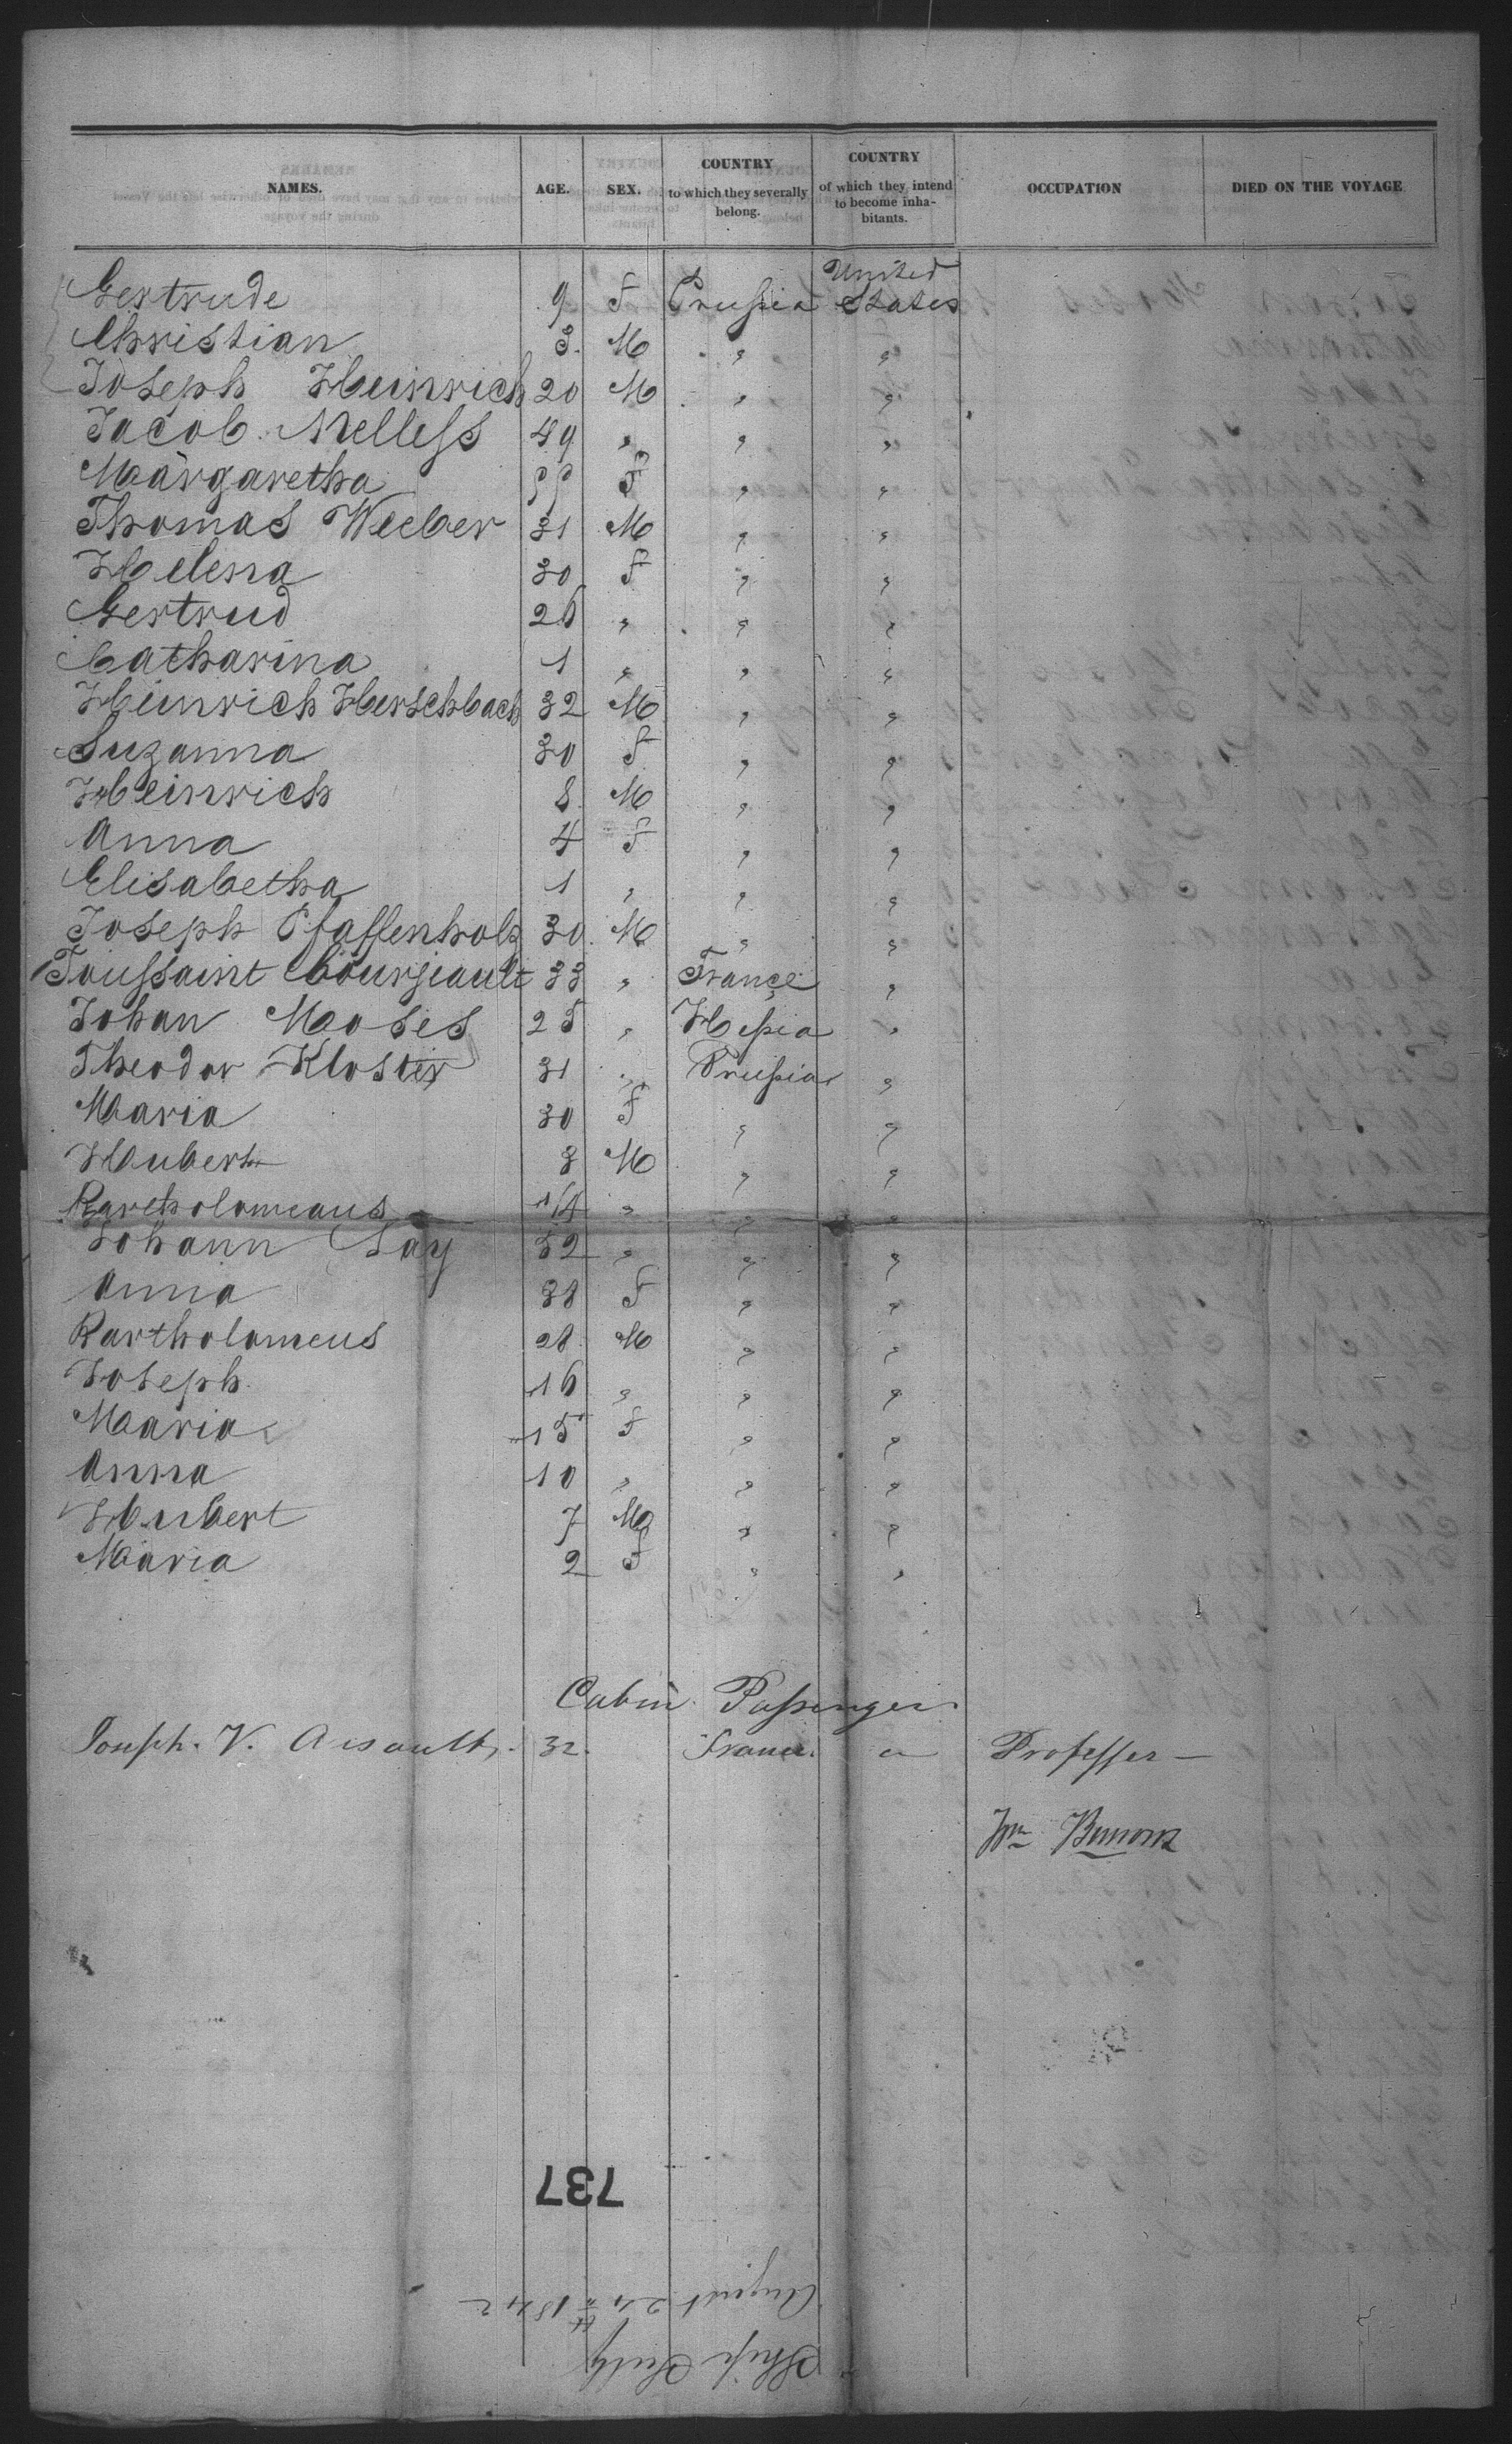 NAMES. AGE. SEX. COUNTRY to which they severally belong. COUNTRY of which they intend to become inhabitants. OCCUPATION DIED ON THE VOYAGE
Gertrude 9 F Prussia United States
Christian 3. M " "
Joseph Heinrich 20 M " "
Jacob Melless 49 " " "
Margaretha 55 F " "
Thomas Weeber 31 M " "
Helena 30 F " "
Gertrud 26 " " "
Catharina 1 " " "
Heinrich Herschbach 32 M " "
Suzanna 30 F " "
Heinrich 8. M " "
Anna 4 F " "
Elisabetha 1 " " "
Joseph Pfaffenholz 30. M " "
Toussaint Courjeault 33 " France "
Johan Moses 25 " Hessia "
Theodor Kloster 31 " Prussia "
Maria 30 F " "
Hubert 3 M " "
Bartholomeaus 1/4 " " "
Johann Say 52 " " "
Anna 38 F " "
Bartholomeus 28 M " "
Joseph 16 " " "
Maria 15 F " "
Anna 10 " " "
Hubert 7 M " "
Maria 2 F " "
Cabin Passenger
Joseph. V. 32. France. " Professer
Wm
737
August 24th 1842
Ship Sully